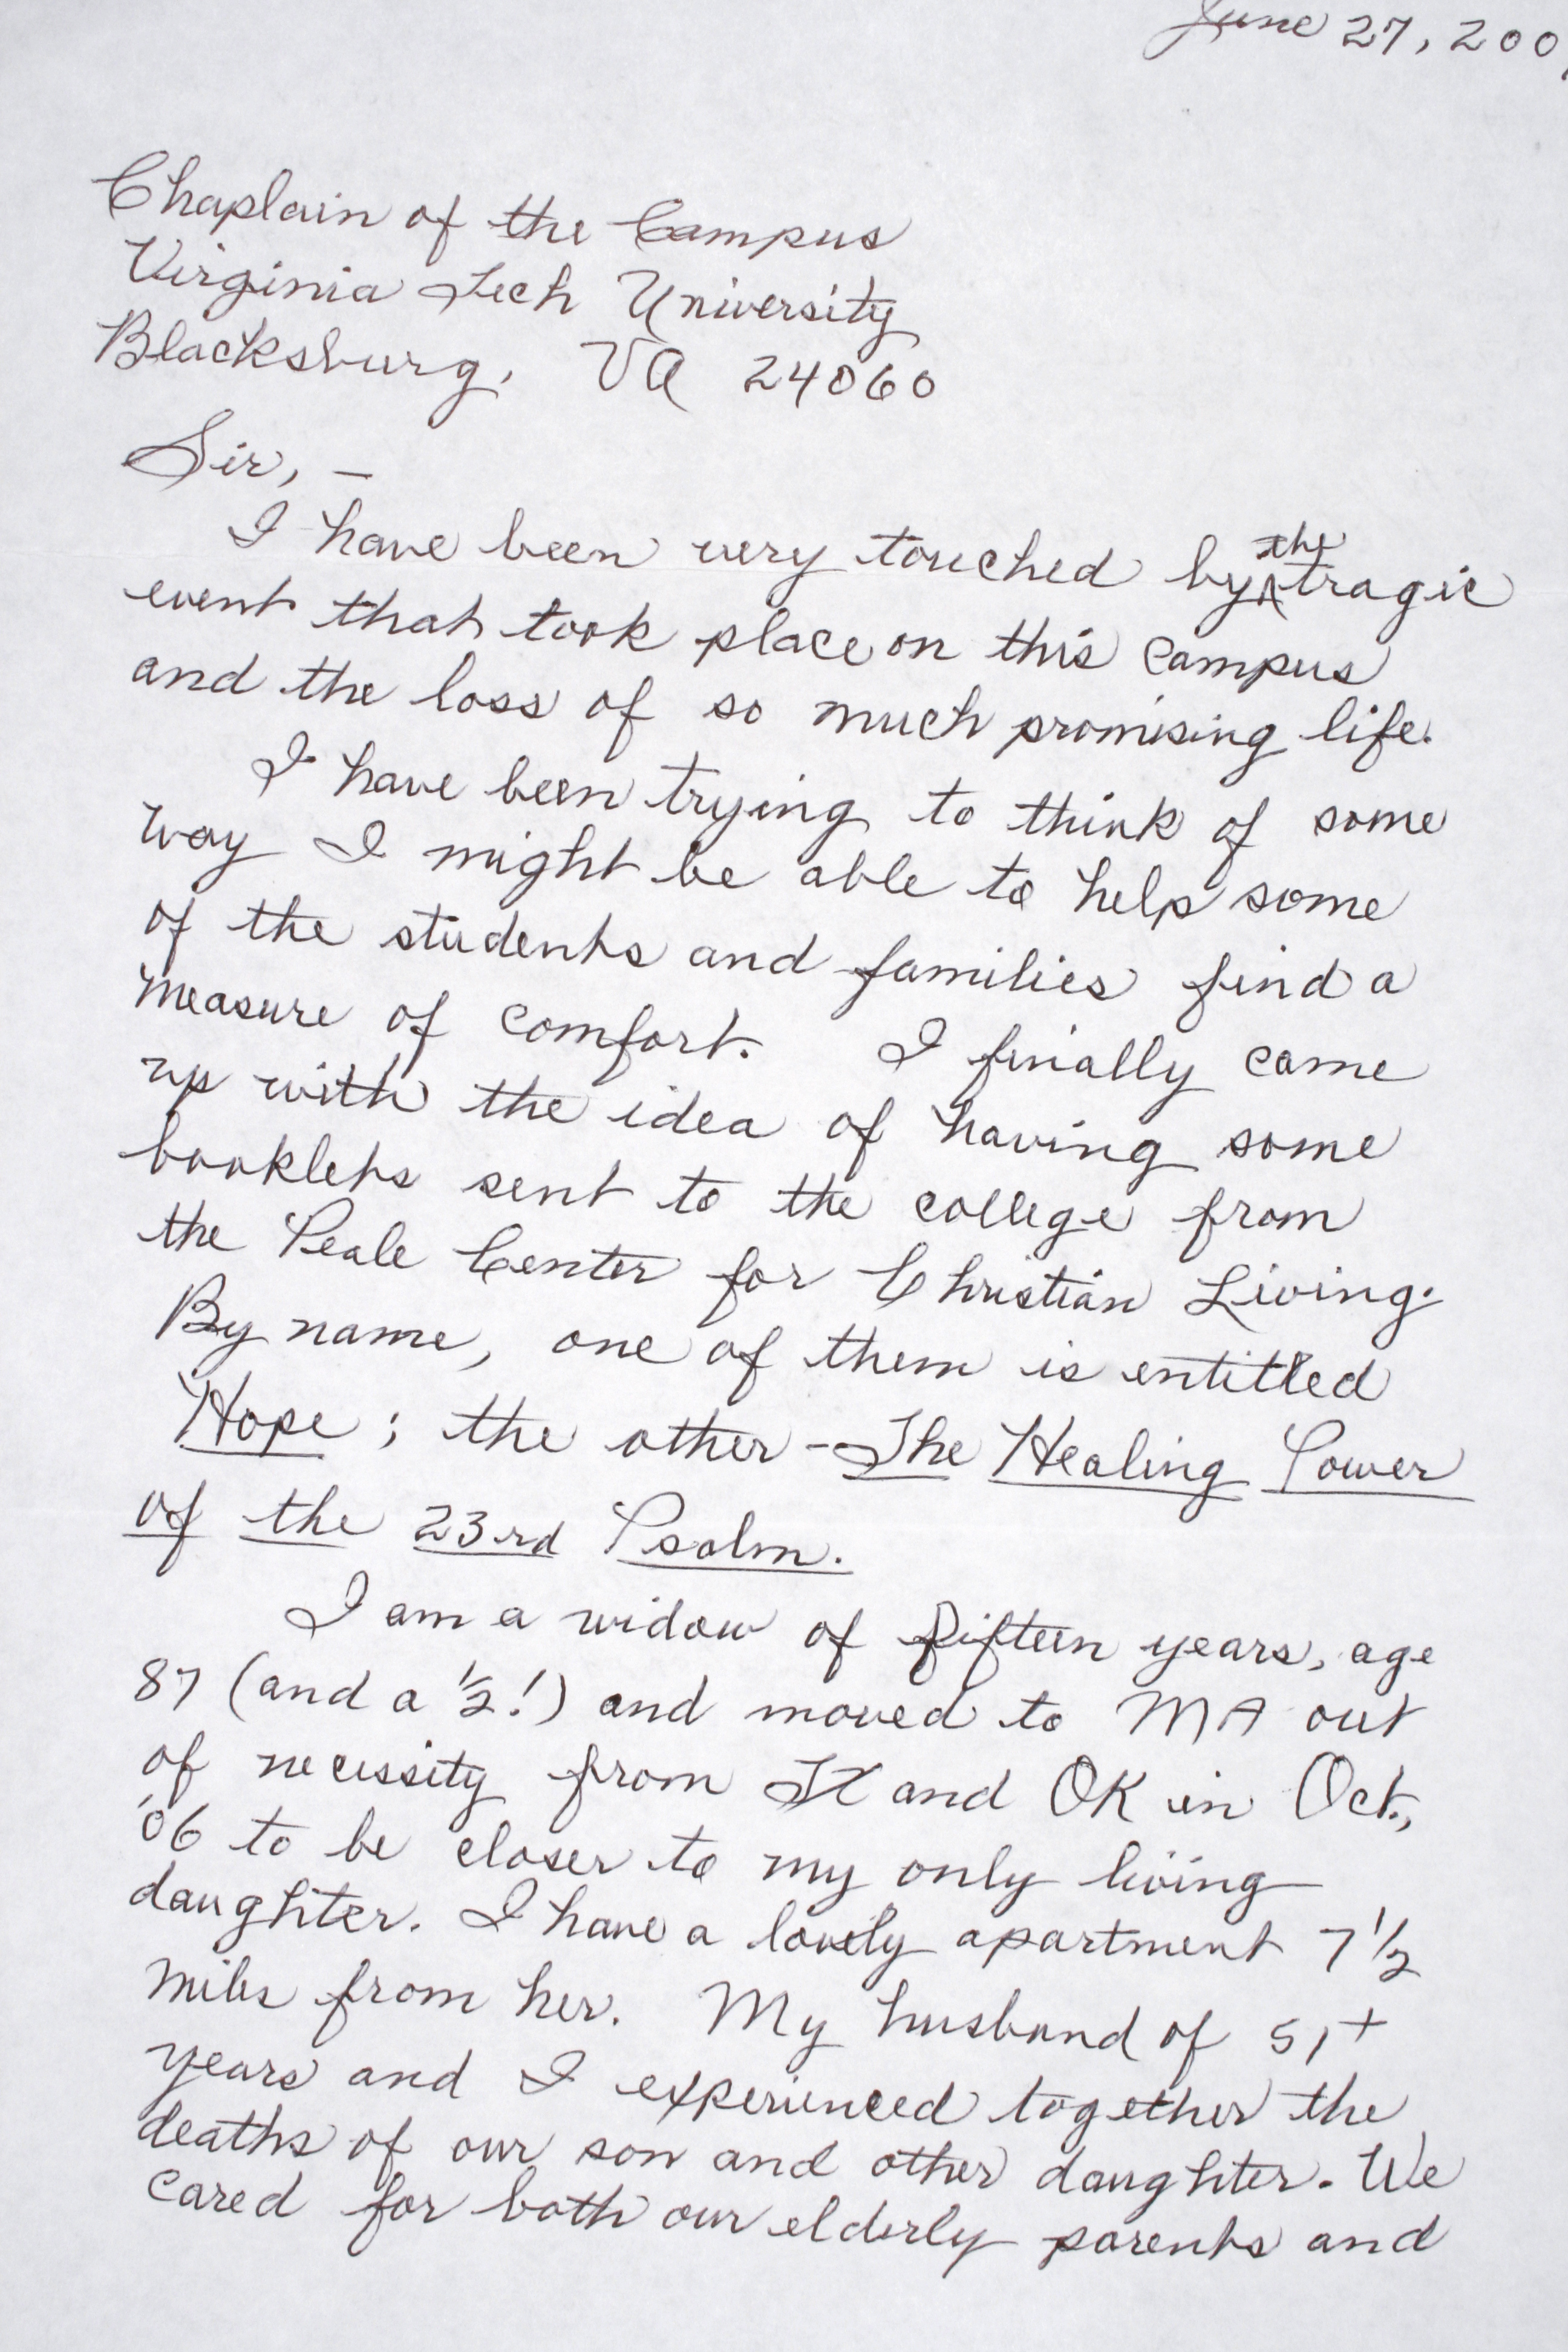 June 27, 200
Chaplain of the Campus
Virginia Tech University
Blacksburg, VA 24060
Sir, —
I have been very touched by the tragic
event that took place on this campus
and the loss of so much promising life.
I have been trying to think of some
way I might be able to help some
of the students and families find a
measure of comfort. I finally came
up with the idea of having some
booklets sent to the college from
the Peale Center for Christian Living.
By name, one of them is entitled
Hope; the other - The Healing Power
of the 23rd Psalm.
I am a widow of fifteen years, age
87 (and a 1/2!) and moved to MA out
of necessity from TX and OK in Oct.,
'06 to be closer to my only living
daughter. I have a lovely apartment 7 1/2
miles from her. My husband of 51+
years and I experienced together the
deaths of our son and other daughter. We
cared for both our elderly parents and